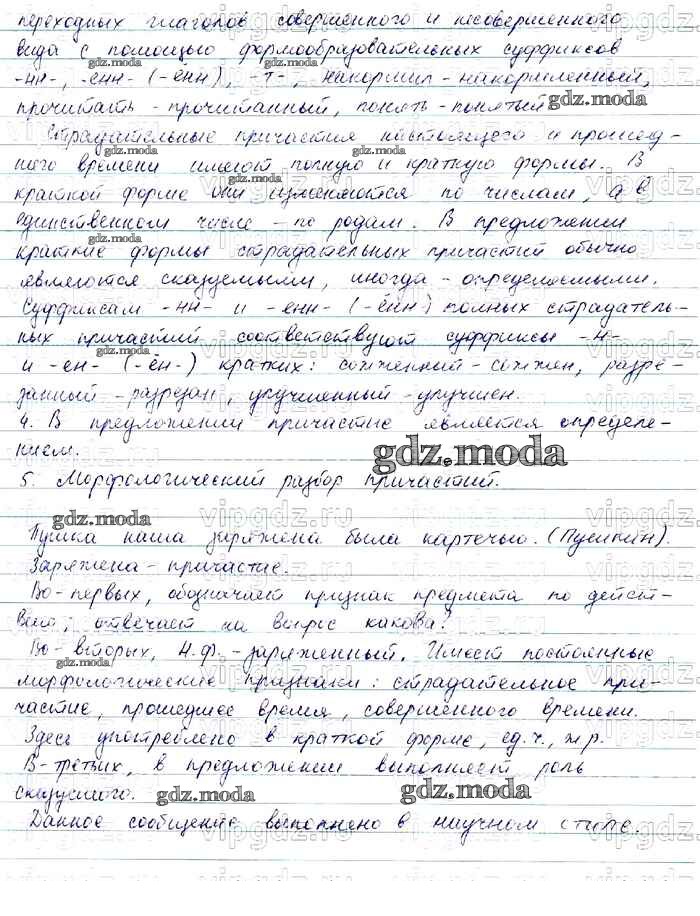 переходных глаголов совершенного и несовершенного
вида с помощью формообразовательных суффиксов
-нн-, -енн- (-ённ), -т-, накормил - накормленный,
прочитать - прочитанный, понять - понятый
gdz.moda
Страдательные причастия настоящего и прошед-
gdz.moda
ного времени имеют полную и краткую формы. В
краткой форме они изменяются по числам, а в
единственном числе - по родам. В предложении
gdz.moda
краткие формы страдательных причастий обычно
являются сказуемыми, иногда - определяемыми.
Суффиксам -нн- и -енн- (-ённ) полных страдатель-
ных причастий соответствуют суффиксы -н-
gdz.moda
и -ен- (-ён-) кратких: сожженный - сожжен, разре-
занный - разрезан, улучшенный - улучшен.
4. В предложении причастие является определе-
нием.
gdz.moda
5. Морфологический разбор причастий.
gdz.moda vipgdz.ru
Пушка наша заряжена была картечью. (Пушкин).
Заряжена - причастие.
Во-первых, обозначает признак предмета по дейст-
вию, отвечает на вопрос какова?
Во-вторых, Н.ф. - заряженный. Имеет постоянные
gdz.moda
морфологические признаки: страдательное при-
частие, прошедшее время, совершенного времени.
Здесь употреблено в краткой форме, ед.ч., ж.р.
В-третьих, в предложении выполняет роль
сказуемого.
gdz.moda gdz.moda
Данное сообщение выполнено в научном стиле.